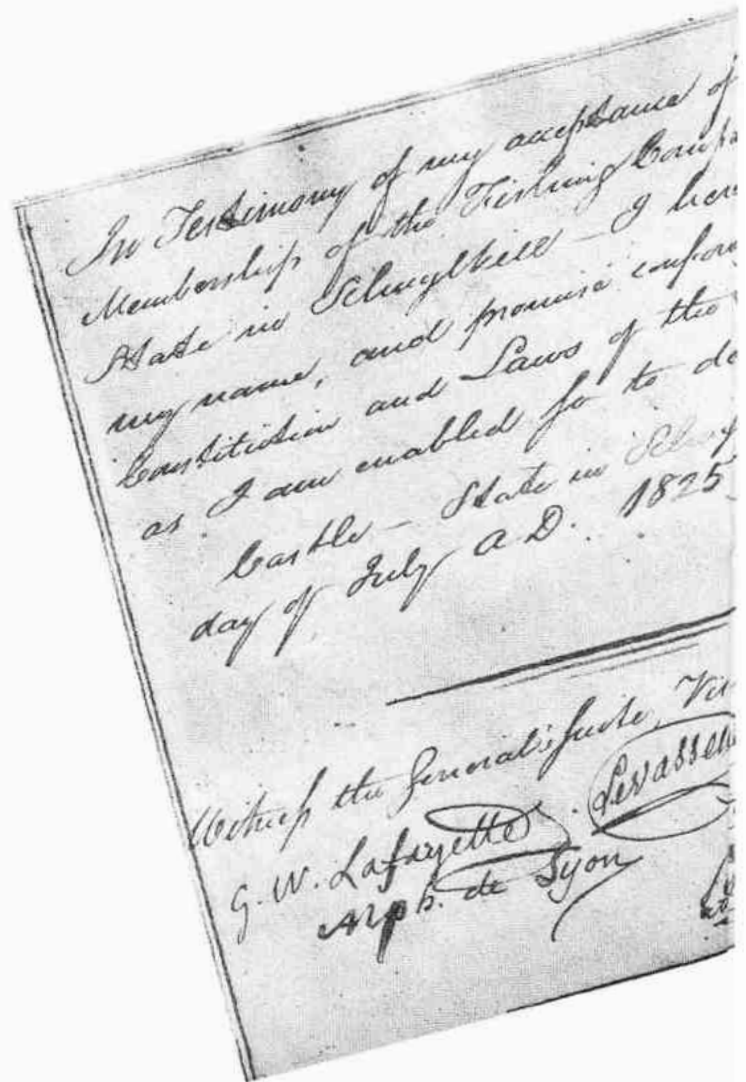 In Testimony of my acceptance of
Membership of the Fishing Compa
State in Schuylkill — I here
my name, and promise confor
Constitution and Laws of the
as I am enabled so to do
Castle — State in Schuy
day of July A.D. 1825
Witness the General's suite, Vis
G. W. Lafayette Levasseu
Alph. de Syon